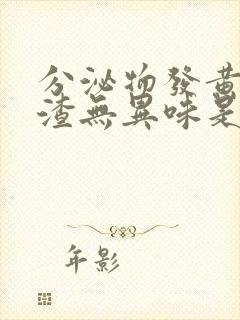 分泌物發黃
渣無異味是
年影